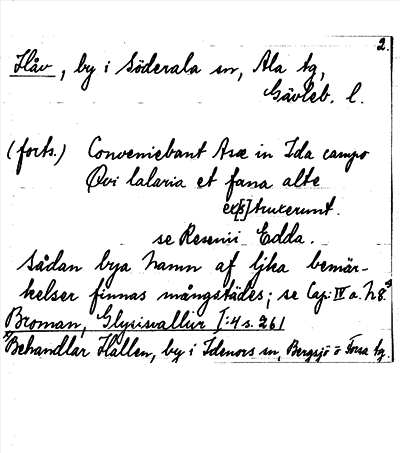 2.
Håv, by i Söderala sn, Ala tg,
Gävleb. l.
(forts.) Conveniebant Asæ in Ida campo
Qvi lalaria et fana alte
ex[s]truxerunt.
se Resenii Edda.
Sådan bya namn af lika bemär-
kelser finnas mångstädes; se Cap: IV a. n 8.x)
Broman, Glysisvallur I:4 s. 261
x) Behandlar Hallen, by i Idenors sn, Bergsjö o Forsa tg.